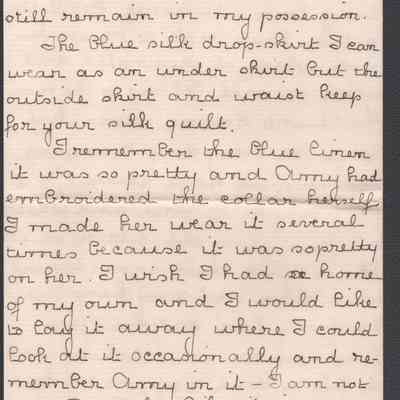 still remain in my possession.
The blue silk drop-skirt I can
wear as an under skirt but the
outside skirt and waist keep
for your silk quilt.
I remember the blue linen
it was so pretty and Amy had
embroidered the collar herself
I made her wear it several
times because it was so pretty
on her. I wish I had a home
of my own and I would like
to lay it away where I could
look at it occasionally and re-
member Amy in it - I am not